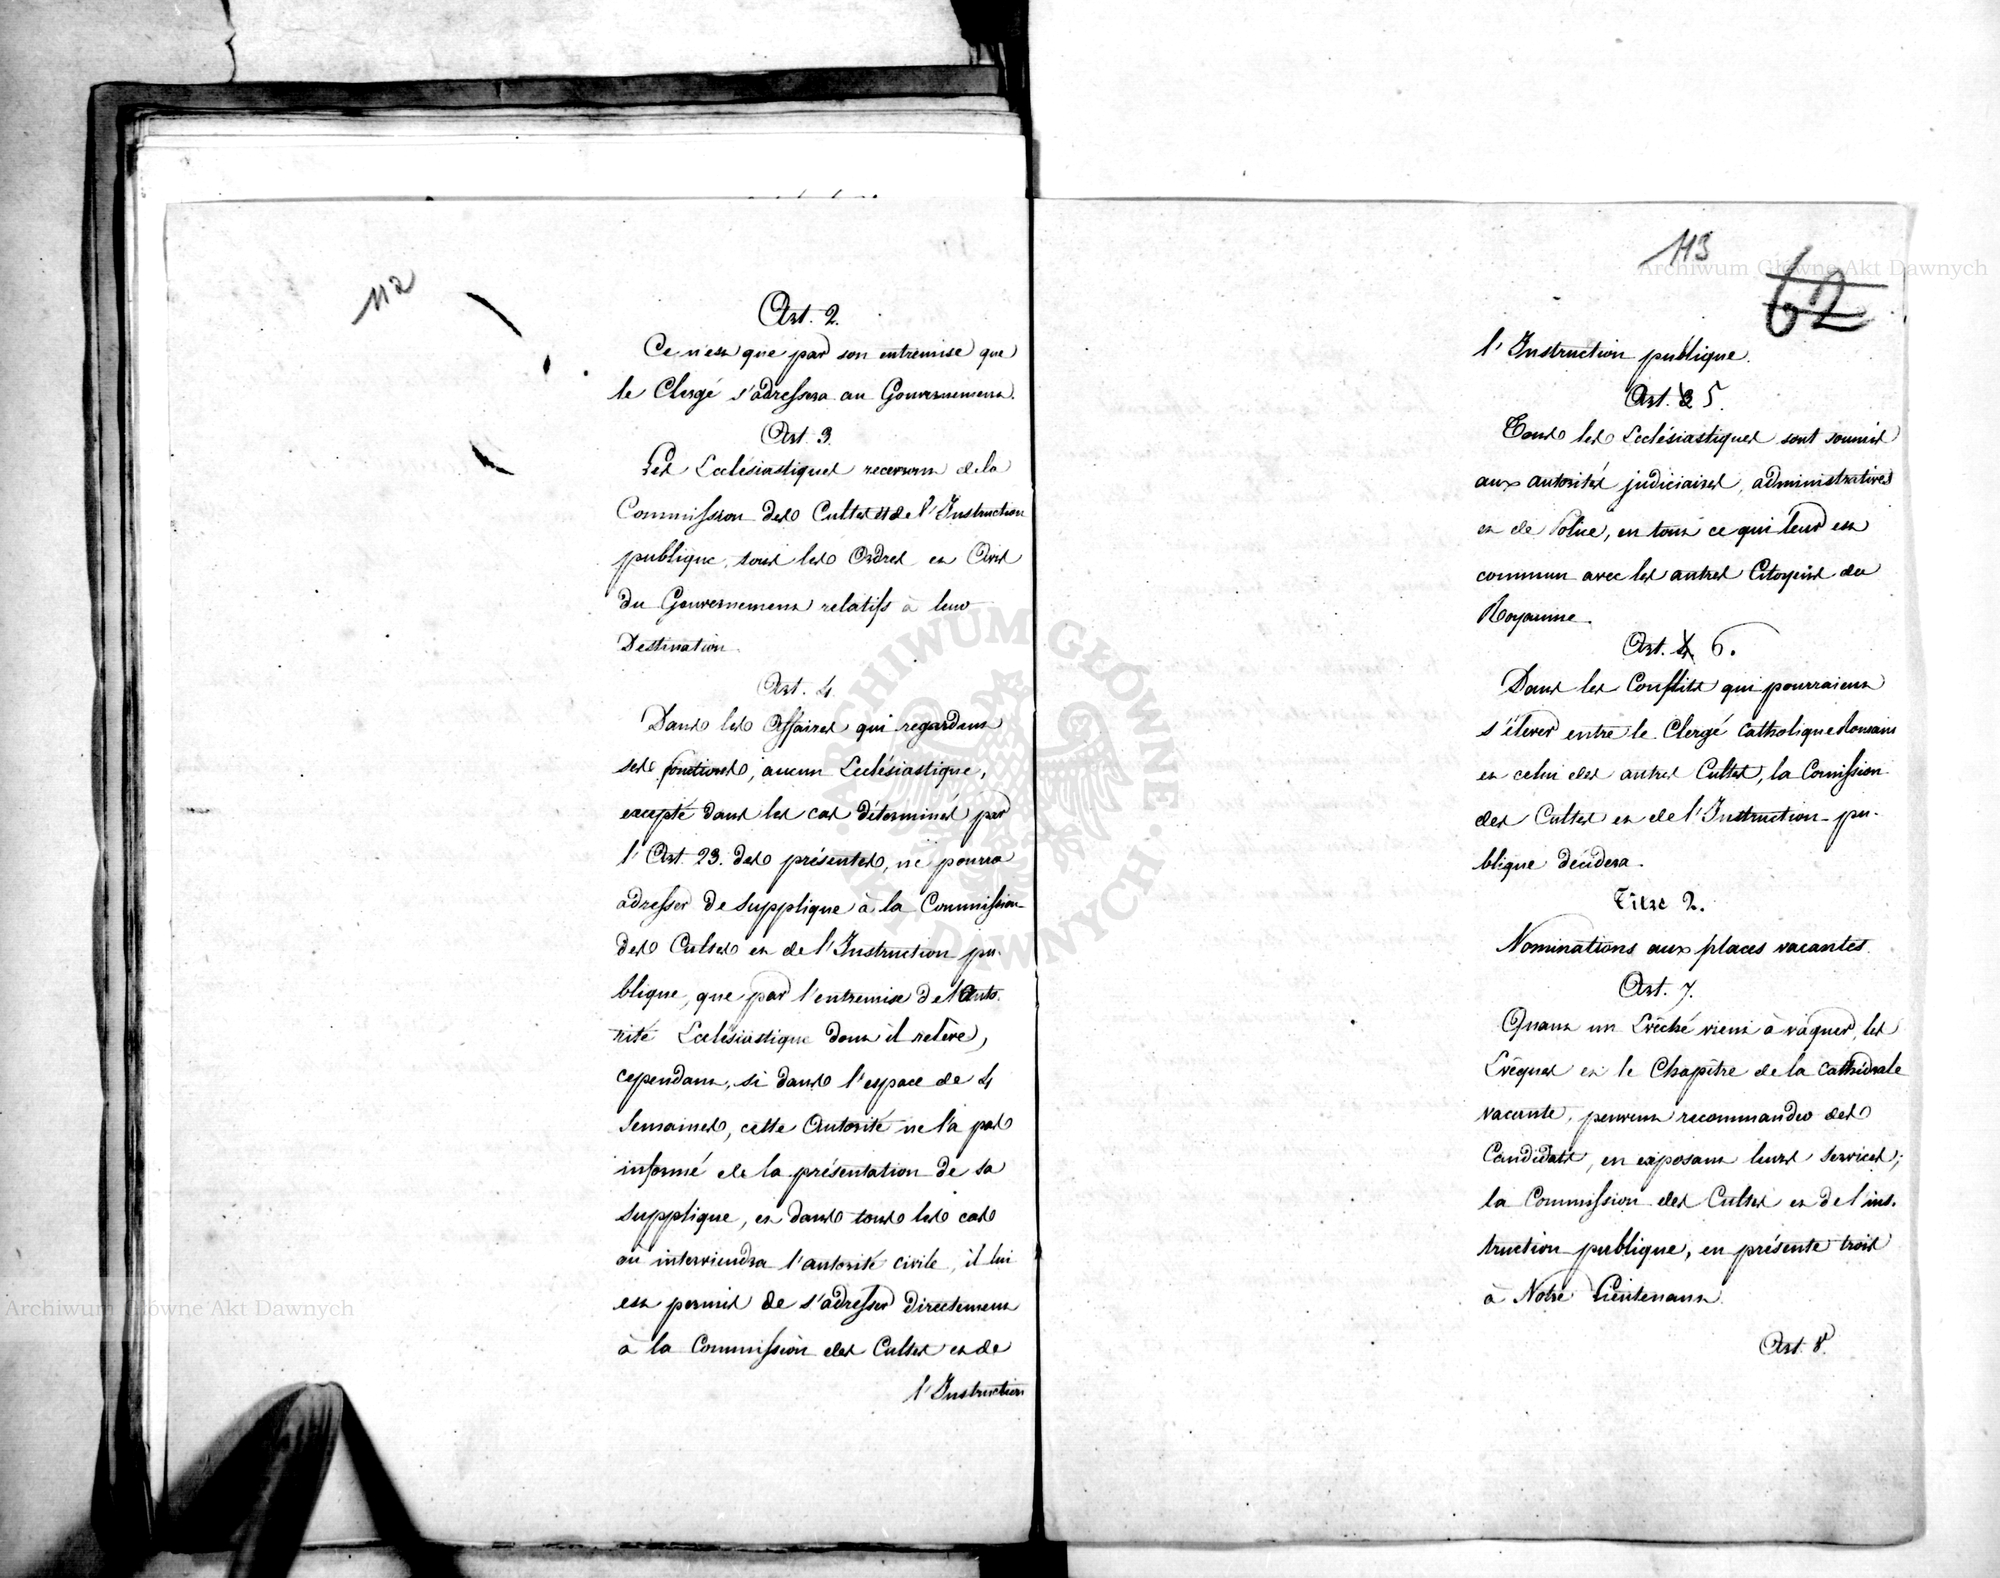 112
Art. 2.
Ce n'est que par son entremise que
le Clergé s'adressera au Gouvernement.
Art. 3.
Les Ecclésiastiques recevront de la
Commission des Cultes et de l'Instruction
publique, tous les Ordres et Avis
du Gouvernement relatifs à leur
Destination.
Art. 4.
Dans les Affaires qui regardent
ses fonctions, aucun Ecclésiastique,
excepté dans les cas déterminés par
l'Art. 23. des présentes, ne pourra
adresser de supplique à la Commission
des Cultes et de l'Instruction pu-
blique, que par l'entremise de l'Auto-
rité Ecclésiastique dont il relève,
cependant, si dans l'espace de 4
Semaines, cette Autorité ne l'a pas
informé de la présentation de sa
supplique, et dans tous les cas
où interviendra l'autorité civile, il lui
est permis de s'adresser directement
à la Commission des Cultes et de
l'Instruction
113
62
l'Instruction publique.
Art. 3 5.
Tous les Ecclésiastiques sont soumis
aux autorités judiciaires, administratives
et de Police, en tout ce qui leur est
commun avec les autres Citoyens du
Royaume.
Art. 4. 6.
Dans les Conflits qui pourraient
s'élever entre le Clergé Catholique Romain
et celui des autres Cultes, la Comission
des Cultes et de l'Instruction pu-
blique décidera.
Titre 2.
Nominations aux places vacantes.
Art. 7.
Quant un Evêché vient à vâquer, les
Evêques et le Chapître de la Cathédrale
vacante, peuvent recommander des
Candidats, en exposant leurs services;
la Commission des Cultes et de l'ins-
truction publique, en présente trois
à Notre Lieutenant.
Art. 8.
Archiwum Główne Akt Dawnych
Archiwum Główne Akt Dawnych
ARCHIWUM GŁÓWNE AKT DAWNYCH